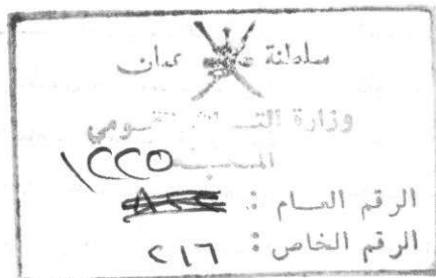 سلطنة عمان
وزارة التراث القومي
المكتبة
١٢٢٥
الرقم العام :
الرقم الخاص : ٢١٦